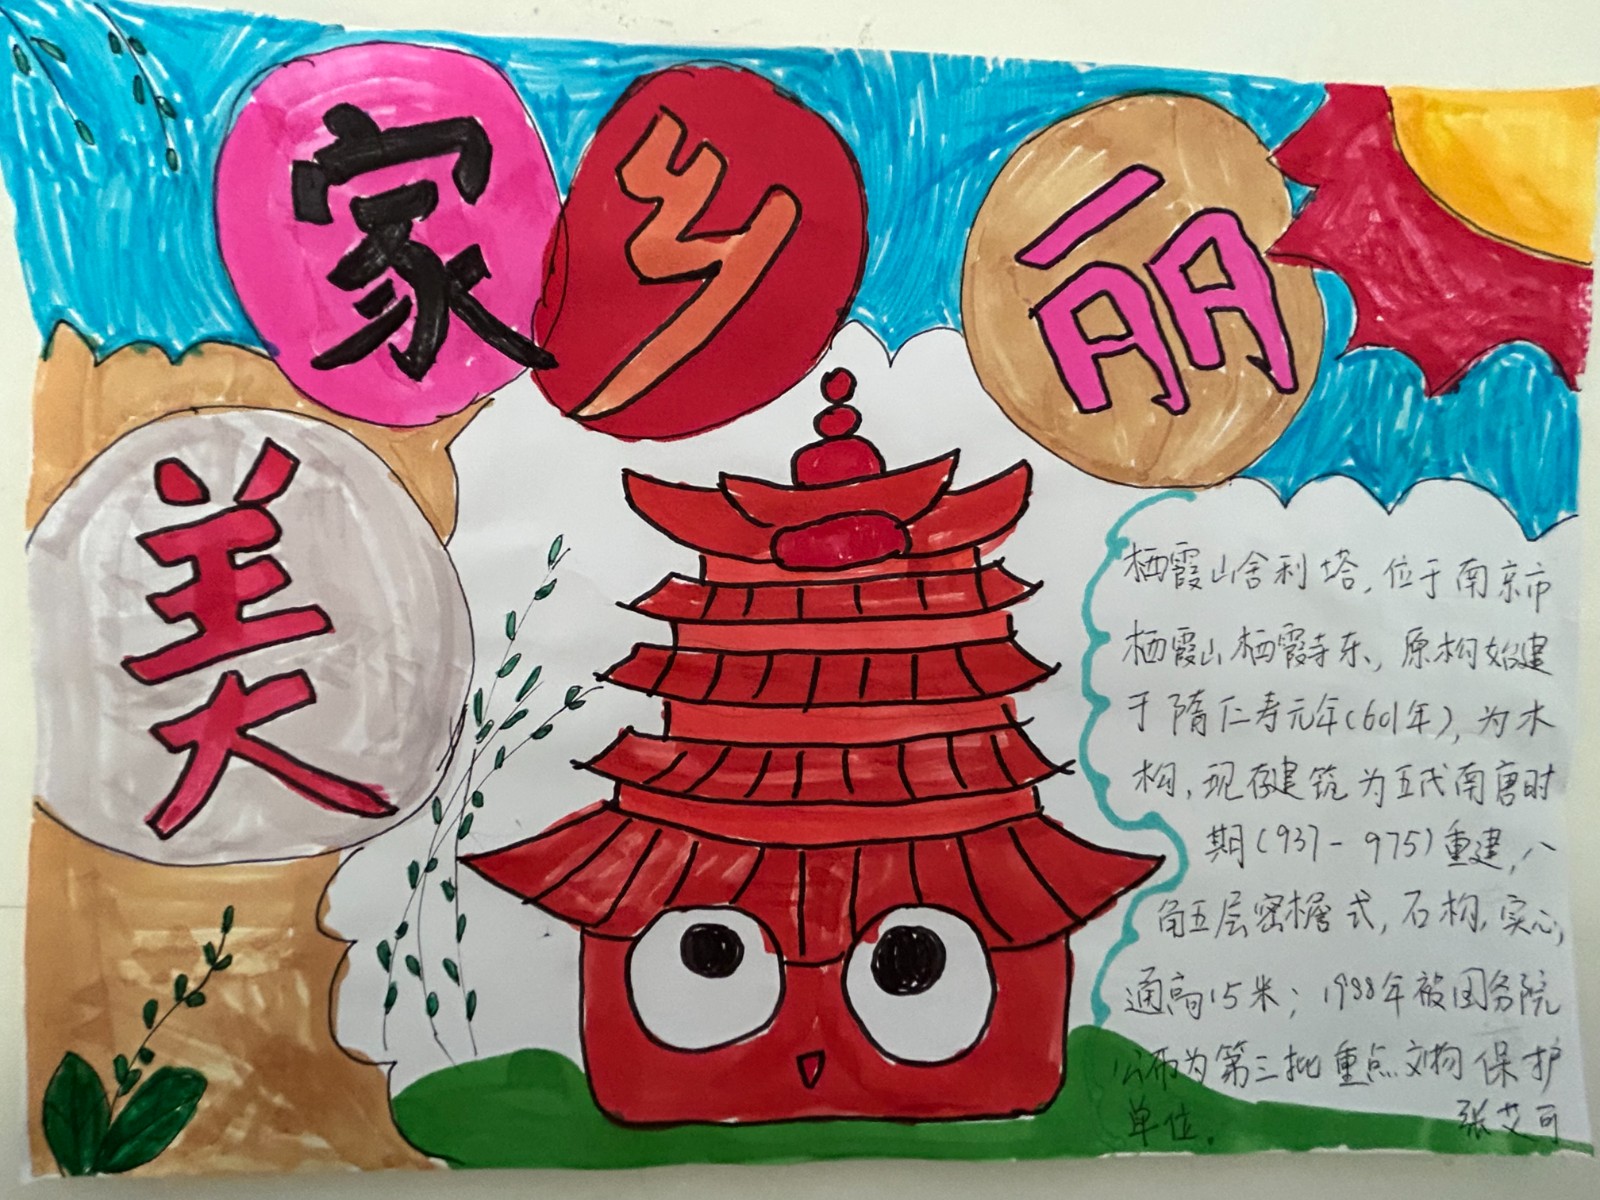 家乡丽
美
栖霞山舍利塔,位于南京市
栖霞山栖霞寺东,原构始建
于隋仁寿元年(601年),为木
构,现存建筑为五代南唐时
期(937-975)重建,八
角五层密檐式,石构,实心,
通高15米;1988年被国务院
公布为第三批重点文物保护
单位。
张艾可